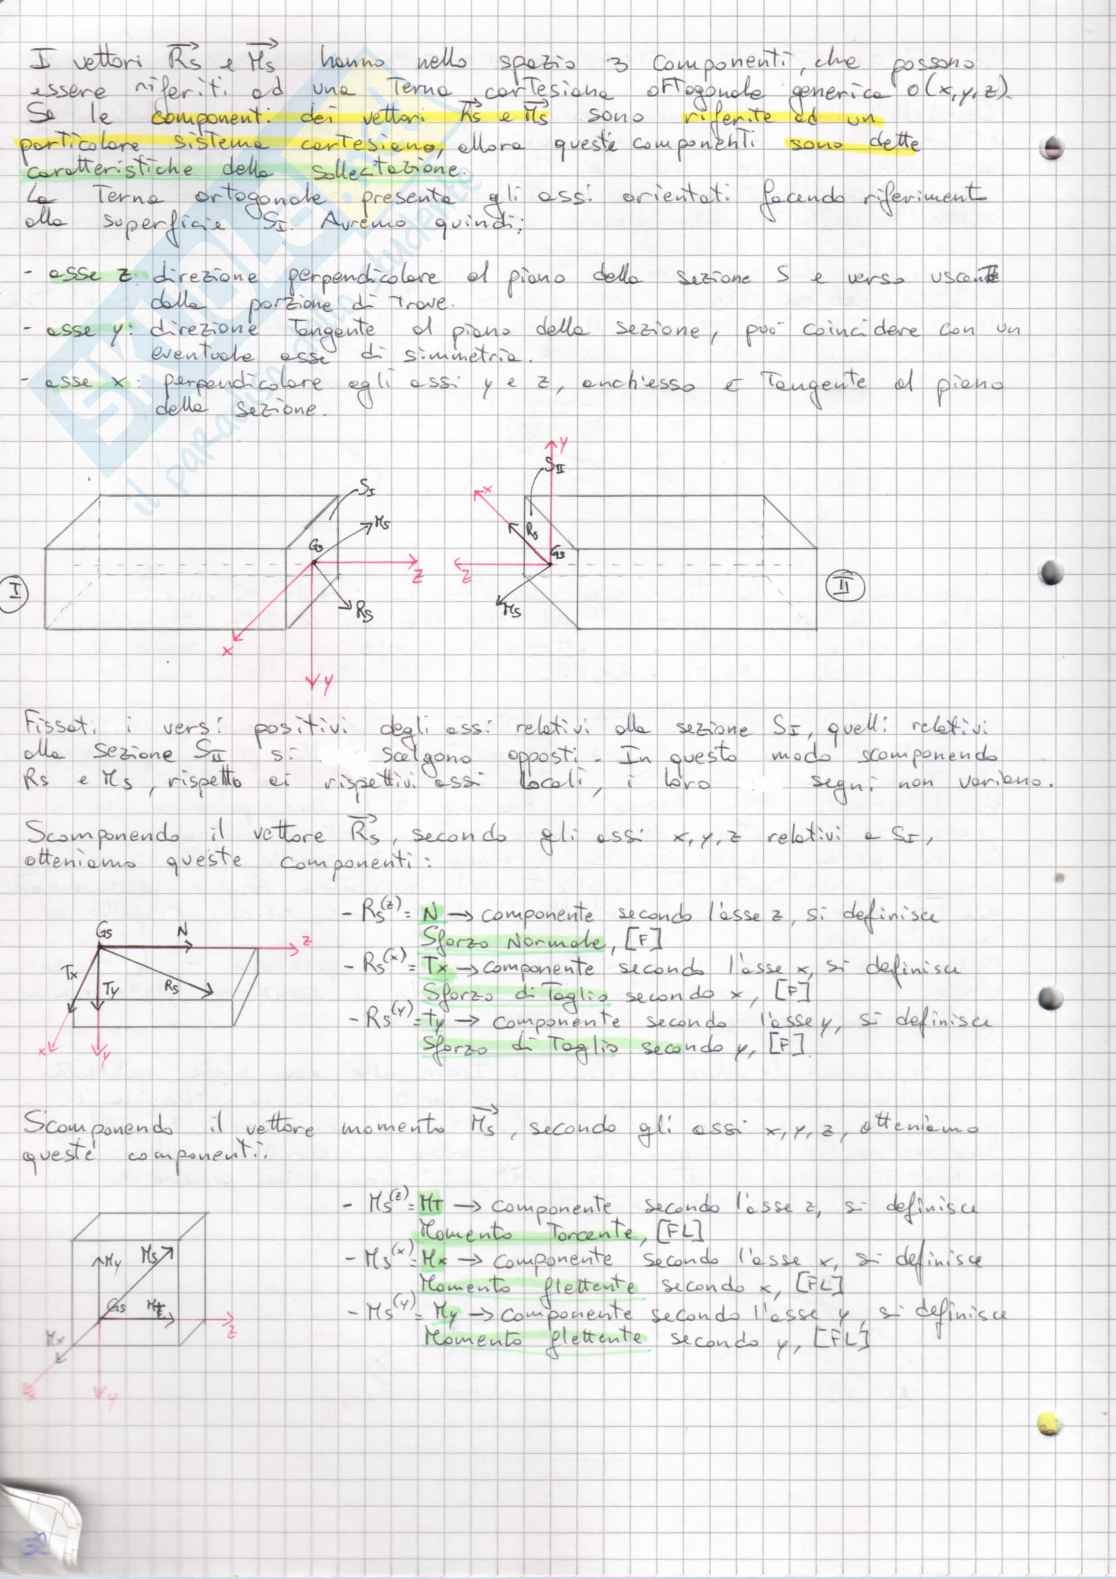 I vettori Rs e Ms hanno nello spazio 3 componenti, che possono
essere riferiti ad una Terna cartesiana ortogonale generica O(x,y,z).
Se le componenti dei vettori Rs e Ms sono riferite ad un
particolare sistema cartesiano, allora queste componenti sono dette
caratteristiche della sollecitazione.
La Terna ortogonale presenta gli assi orientati facendo riferiment
alla superficie SI. Avremo quindi;
- asse z: direzione perpendicolare al piano della sezione S e verso uscente
dalla porzione di Trave.
- asse y: direzione Tangente al piano della sezione, può coincidere con un
eventuale asse di simmetria.
- asse x: perpendicolare agli assi y e z, anch'esso è Tangente al piano
della sezione.
SI
Ms
Gs
z
Rs
x
y
I
y
SII
x
Rs
Gs
z
Ms
II
Fissati i versi positivi degli assi relativi alla sezione SI, quelli relativi
alla sezione SII si scelgono opposti. In questo modo scomponendo
Rs e Ms, rispetto ai rispettivi assi locali, i loro segni non variano.
Scomponendo il vettore Rs, secondo gli assi x,y,z relativi a SI,
otteniamo queste componenti:
Gs
N
z
Tx
Ty
Rs
x
y
- Rs(z) = N → componente secondo l'asse z, si definisce
Sforzo Normale, [F]
- Rs(x) = Tx → componente secondo l'asse x, si definisce
Sforzo di Taglio secondo x, [F]
- Rs(y) = Ty → componente secondo l'asse y, si definisce
Sforzo di Taglio secondo y, [F]
Scomponendo il vettore momento Ms, secondo gli assi x,y,z, otteniamo
queste componenti:
My
Ms
Gs
Mt
z
Mx
x
y
- Ms(z) = MT → componente secondo l'asse z, si definisce
Momento Torcente, [FL]
- Ms(x) = Mx → componente secondo l'asse x, si definisce
Momento flettente secondo x, [FL]
- Ms(y) = My → componente secondo l'asse y, si definisce
Momento flettente secondo y, [FL]